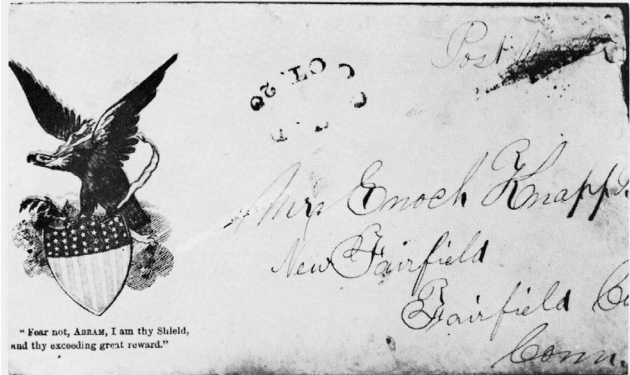 Post
OCT. 29
Mrs Enoch Knapp
New Fairfield
Fairfield
Conn.
"Fear not, ABRAM, I am thy Shield,
and thy exceeding great reward."